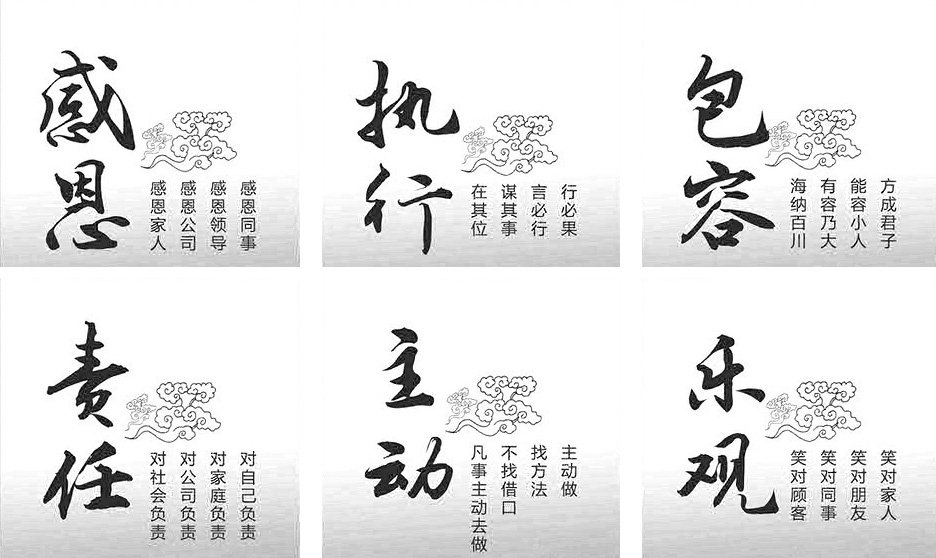 感恩
感恩家人
感恩公司
感恩领导
感恩同事
执行
在其位
谋其事
言必行
行必果
包容
海纳百川
有容乃大
能容小人
方成君子
责任
对社会负责
对公司负责
对家庭负责
对自己负责
主动
凡事主动去做
不找借口
找方法
主动做
乐观
笑对顾客
笑对同事
笑对朋友
笑对家人